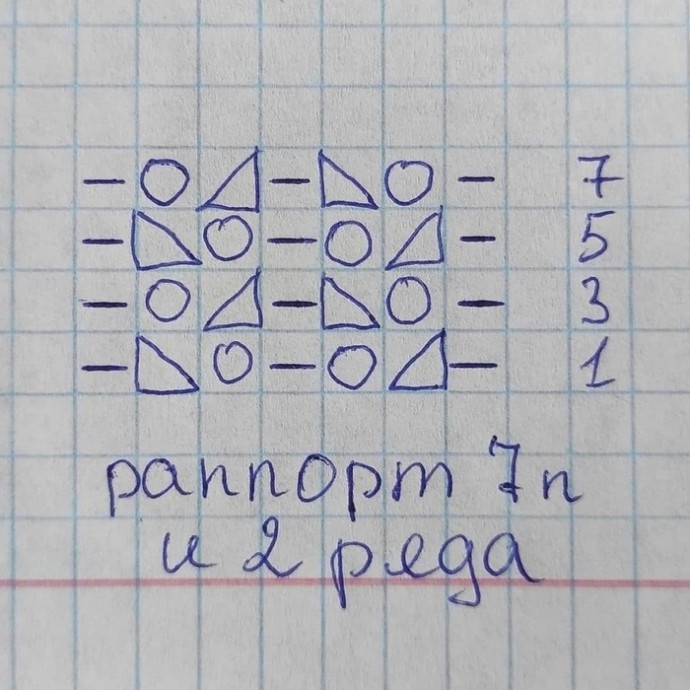 — ○ ◿ — ◺ ○ — 7
— ◺ ○ — ○ ◿ — 5
— ○ ◿ — ◺ ○ — 3
— ◺ ○ — ○ ◿ — 1
раппорт 7п
и 2 ряда